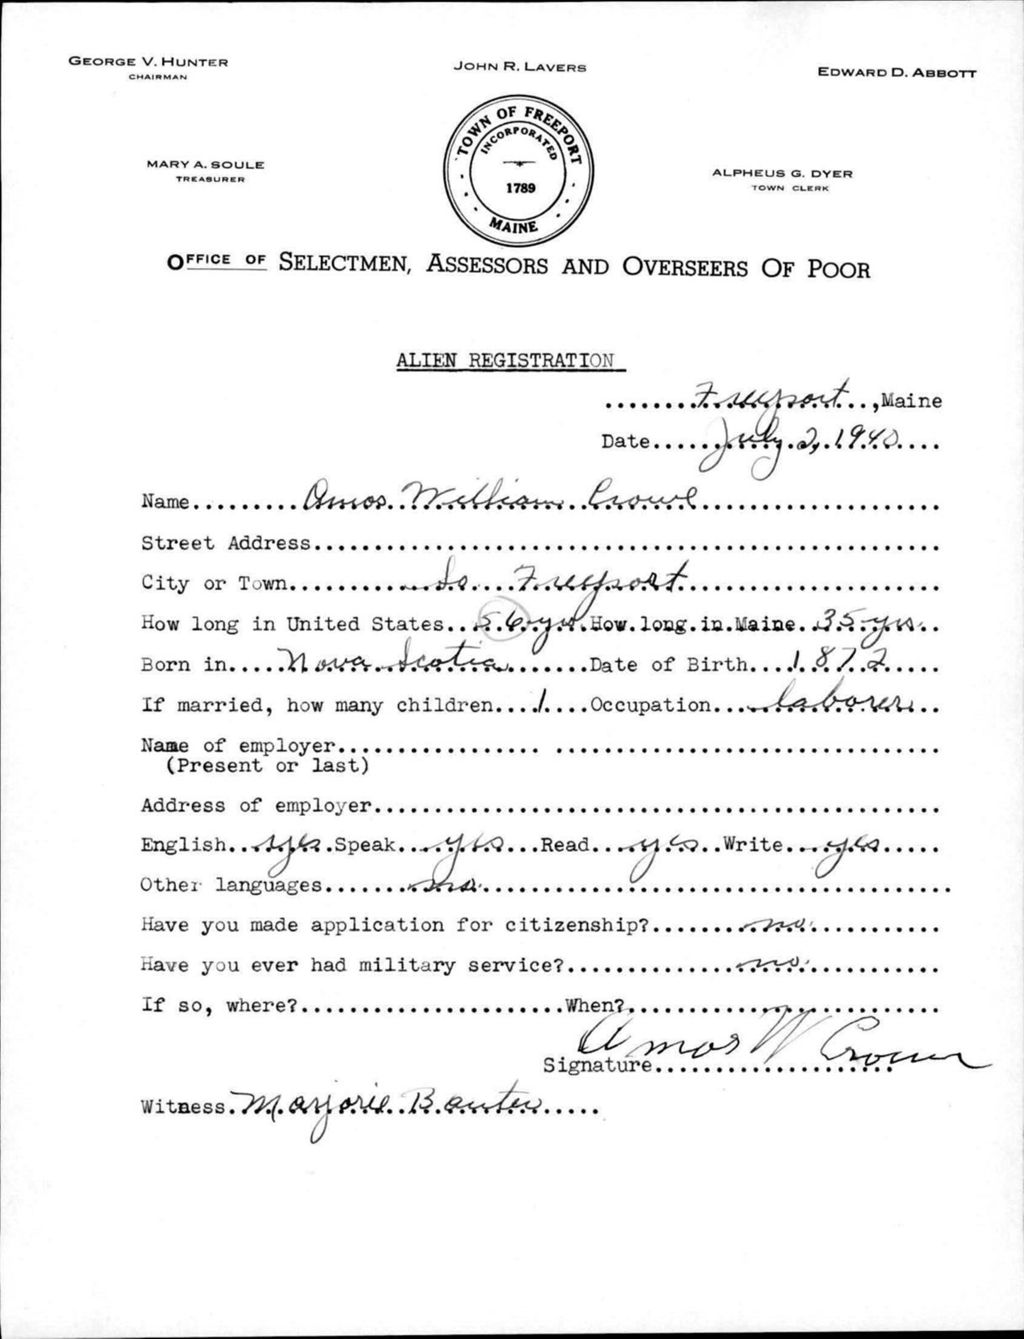 GEORGE V. HUNTER
CHAIRMAN
JOHN R. LAVERS
EDWARD D. ABBOTT
TOWN OF FREEPORT
INCORPORATED
1789
MAINE
MARY A. SOULE
TREASURER
ALPHEUS G. DYER
TOWN CLERK
OFFICE OF SELECTMEN, ASSESSORS AND OVERSEERS OF POOR
ALIEN REGISTRATION
........Freeport...,Maine
Date......July.2,.1940....
Name.........Amos.William.Crowe....................
Street Address.......................................
City or Town............So....Freeport................
How long in United States...56.yrs.How.long.in.Maine..35.yrs..
Born in.....Nova.Scotia.......Date of Birth....1872.....
If married, how many children....1....Occupation....laborer..
Name of employer................. ........................
(Present or last)
Address of employer...................................
English..yes.Speak...yes...Read....yes..Write...yes.....
Other languages.......no.............................
Have you made application for citizenship?........no...........
Have you ever had military service?..............no...........
If so, where?......................When?....................
Signature.....................
Amos W
Witness.Marjorie.......